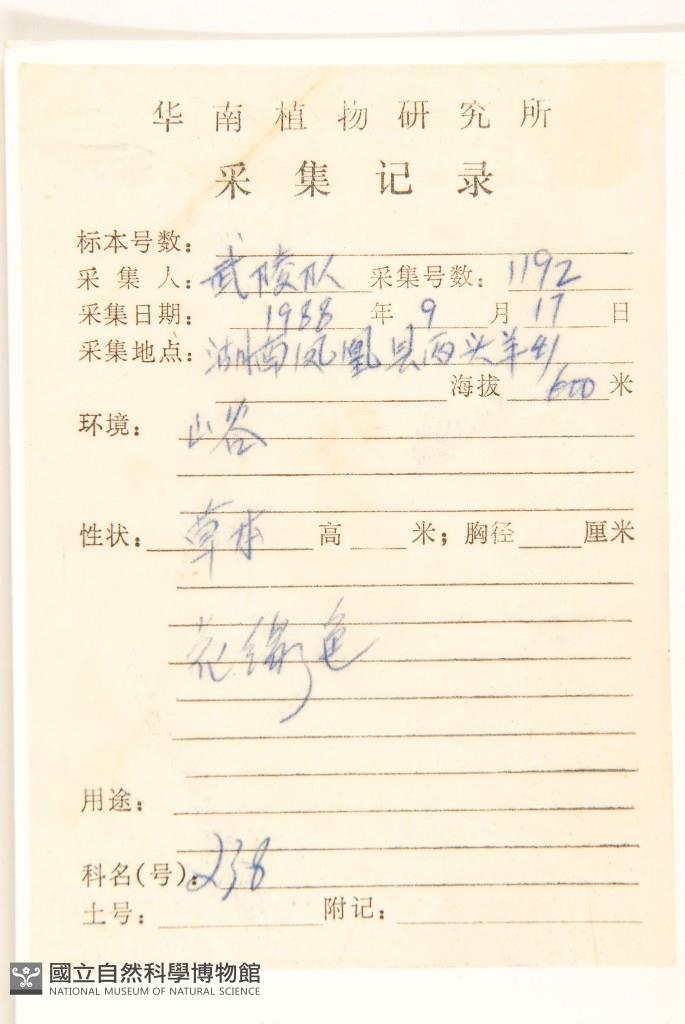 华南植物研究所
采集记录
标本号数：
采集人：武陵队 采集号数：1192
采集日期：1988年9月17日
采集地点：湖南凤凰县两头羊乡
海拔600米
环境：山谷
性状：草本 高 米；胸径 厘米
花绿色
用途：
科名(号)：238
土号： 附记：
國立自然科學博物館
NATIONAL MUSEUM OF NATURAL SCIENCE